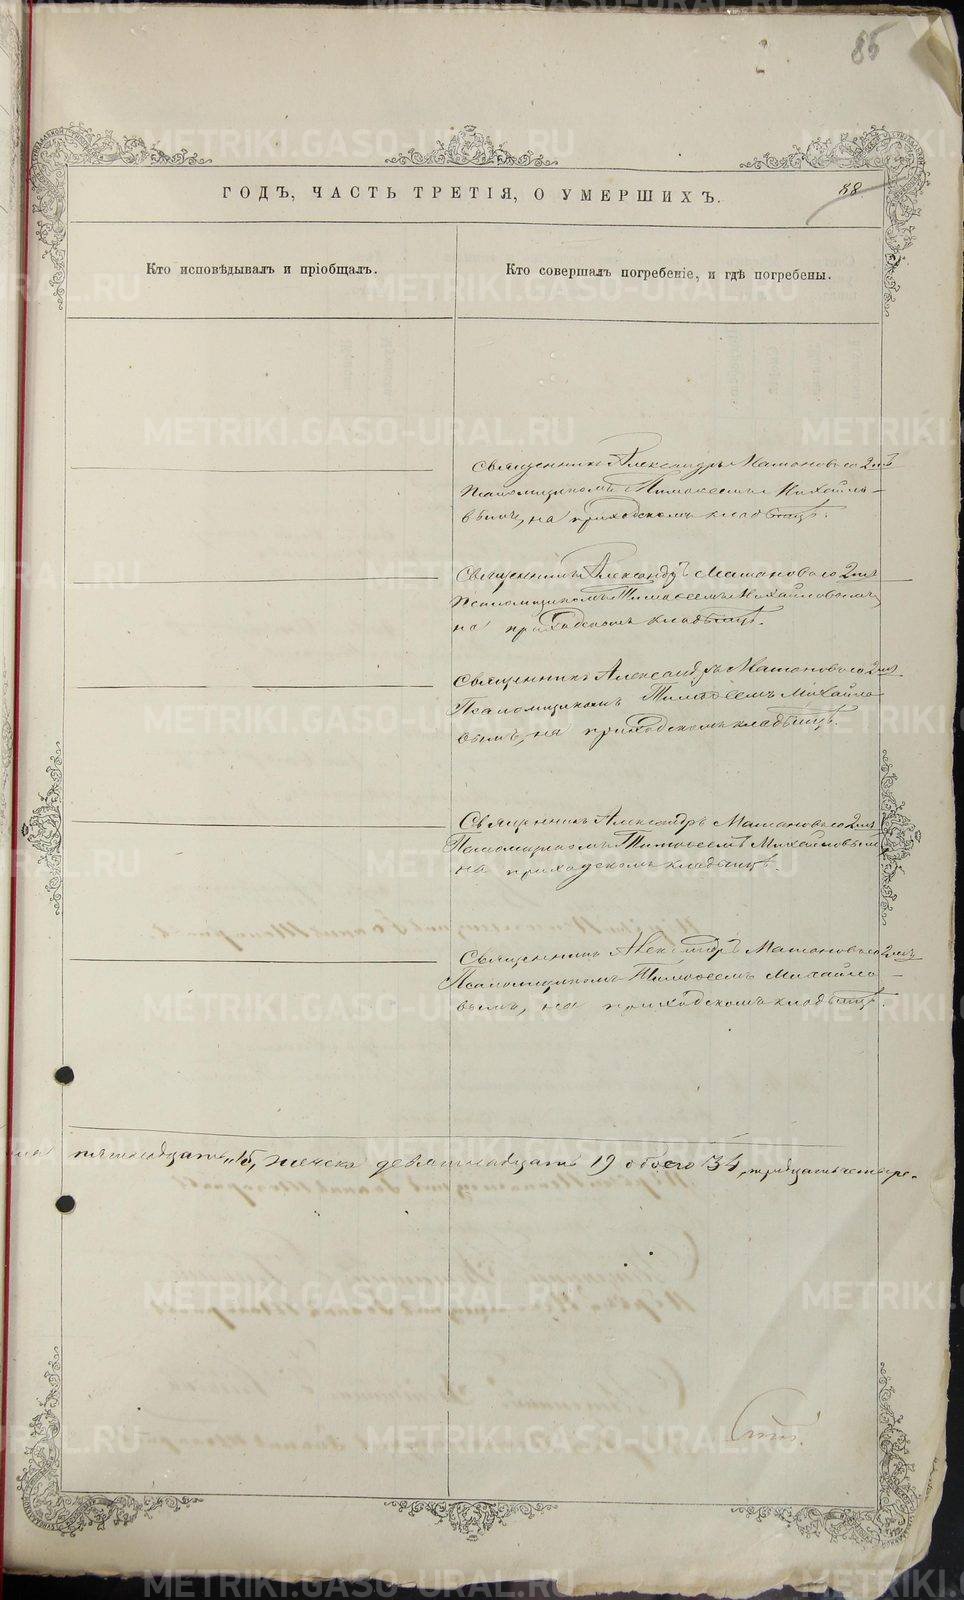 85
88
ГОДЪ, ЧАСТЬ ТРЕТІЯ, О УМЕРШИХЪ.
Кто исповѣдывалъ и пріобщалъ.
Кто совершалъ погребеніе, и гдѣ погребены.
Священникъ Александръ Матановъ со 2мъ
Псаломщикомъ Тимоѳеемъ Михайло-
вымъ, на приходскомъ кладбищѣ.
Священникъ Александръ Матановъ со 2мъ
Псаломщикомъ Тимоѳеемъ Михайловымъ,
на приходскомъ кладбищѣ.
Священникъ Александръ Матановъ со 2мъ
Псаломщикомъ Тимоѳеемъ Михайло
вымъ, на приходскомъ кладбищѣ.
Священникъ Александръ Матановъ со 2мъ
Псаломщикомъ Тимоѳеемъ Михайловым
на приходскомъ кладбищѣ.
Священникъ Александръ Матановъ со 2мъ
Псаломщикомъ Тимоѳеемъ Михайло-
вымъ, на приходскомъ кладбищѣ.
пятнадцать „15„ женска девятнадцать 19 обоего 34, тридцать четыре.
METRIKI.GASO-URAL.RU